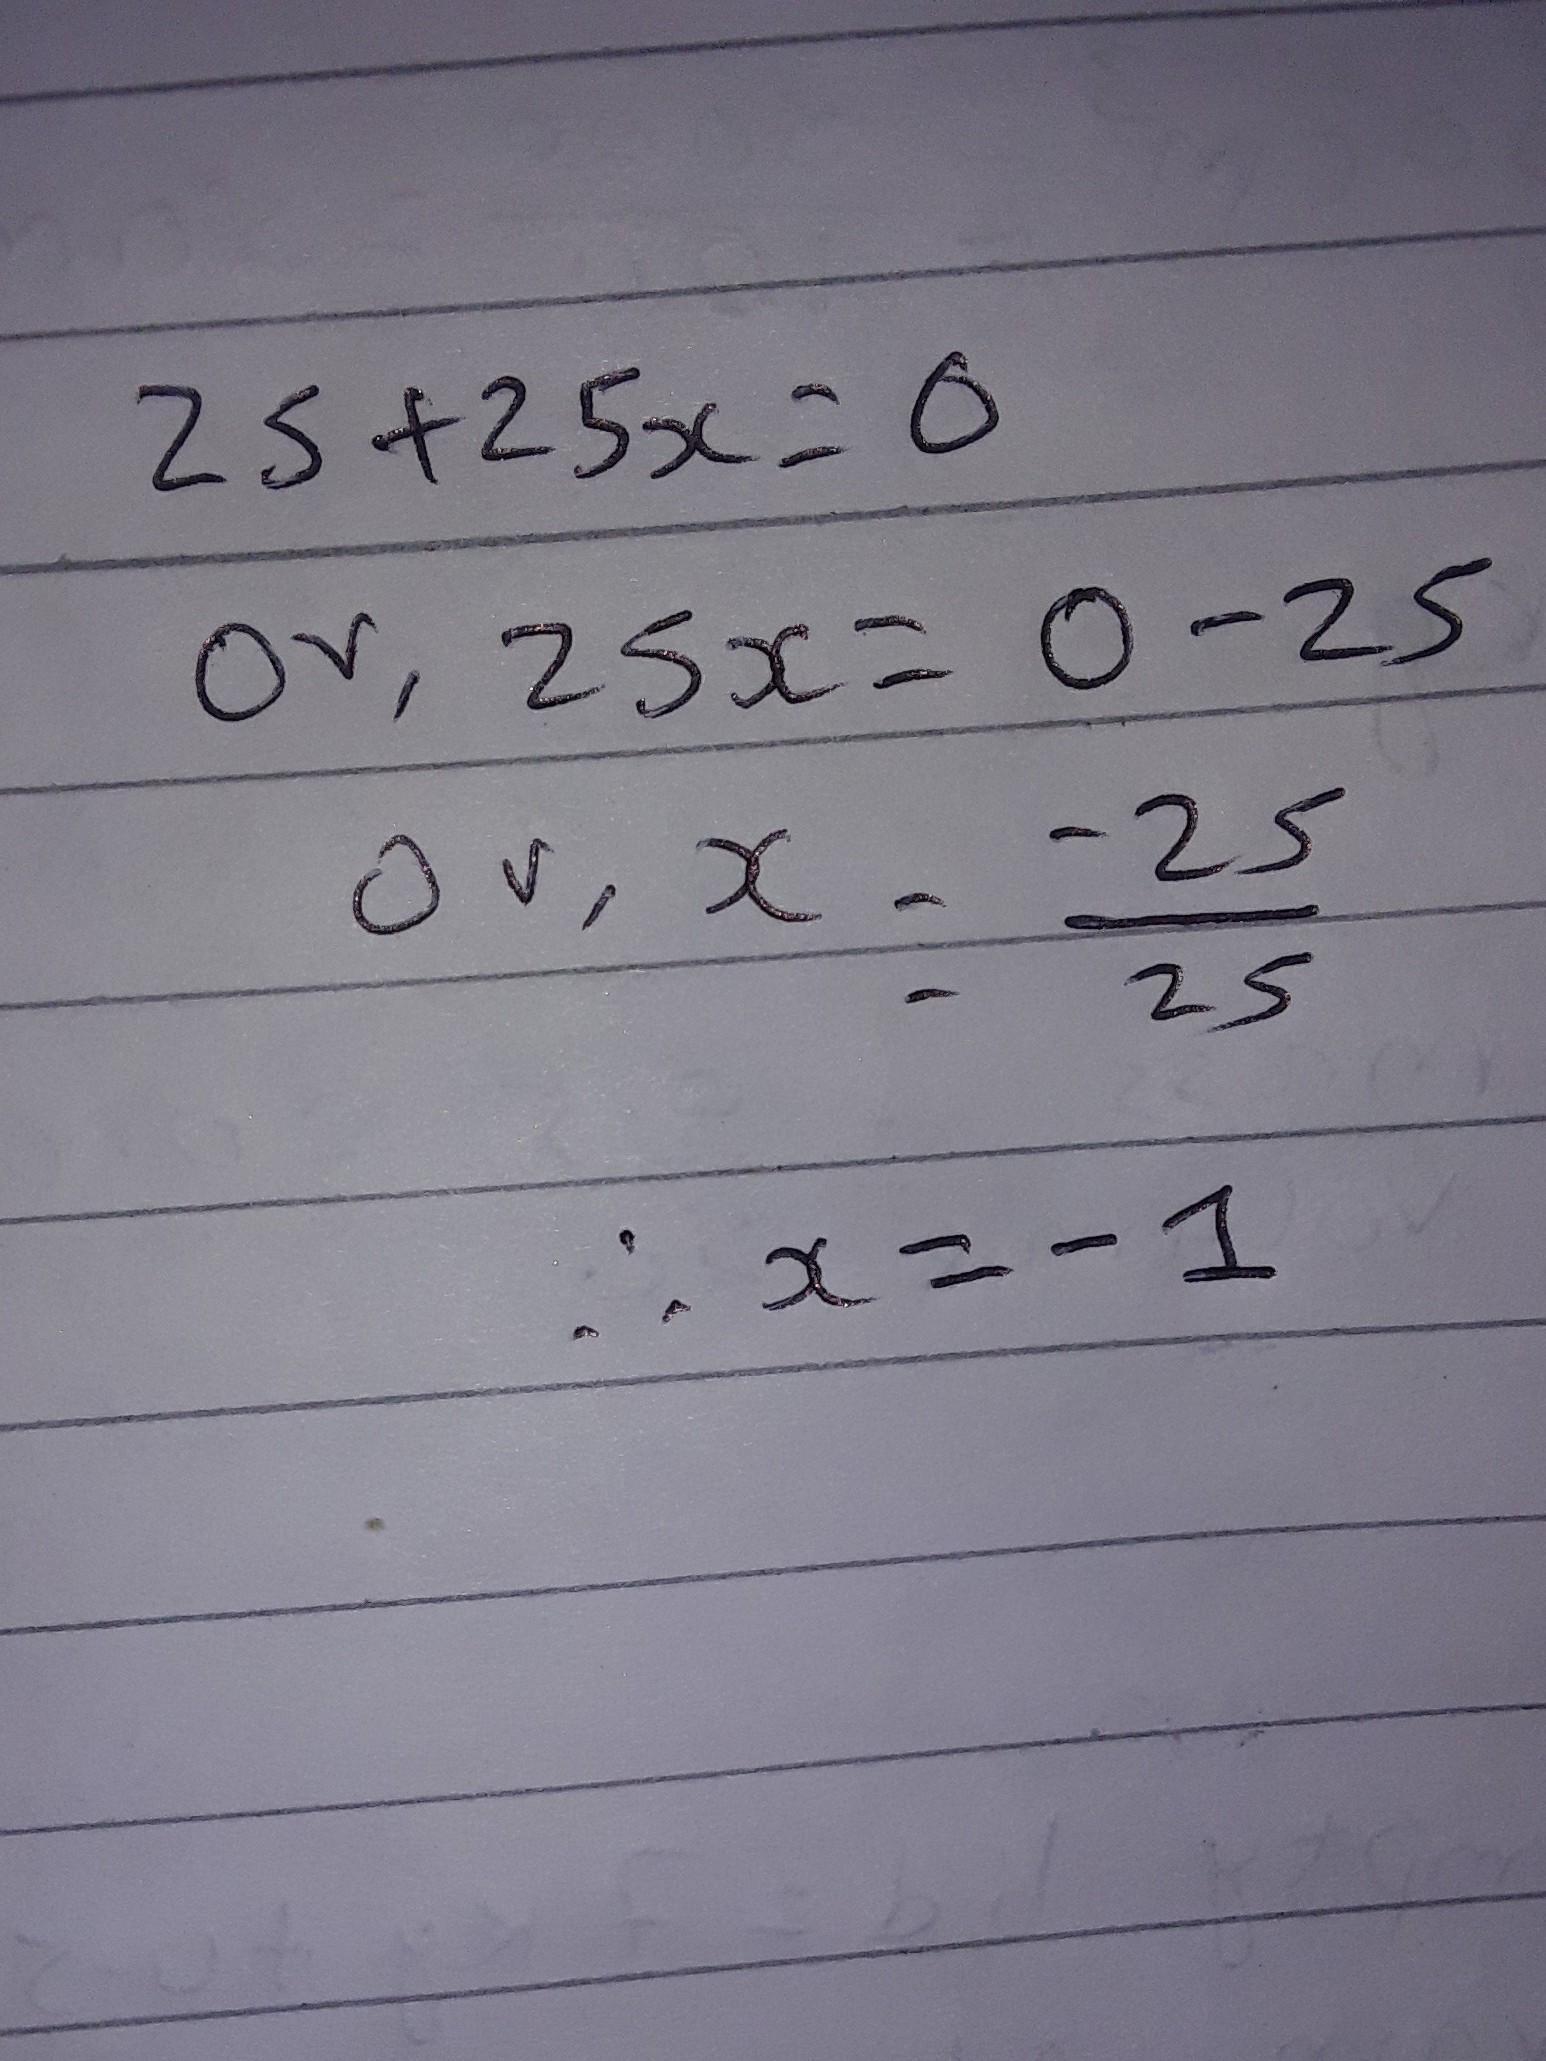 25+25x=0
Or, 25x=0-25
Or, x = -25/25
∴ x=-1